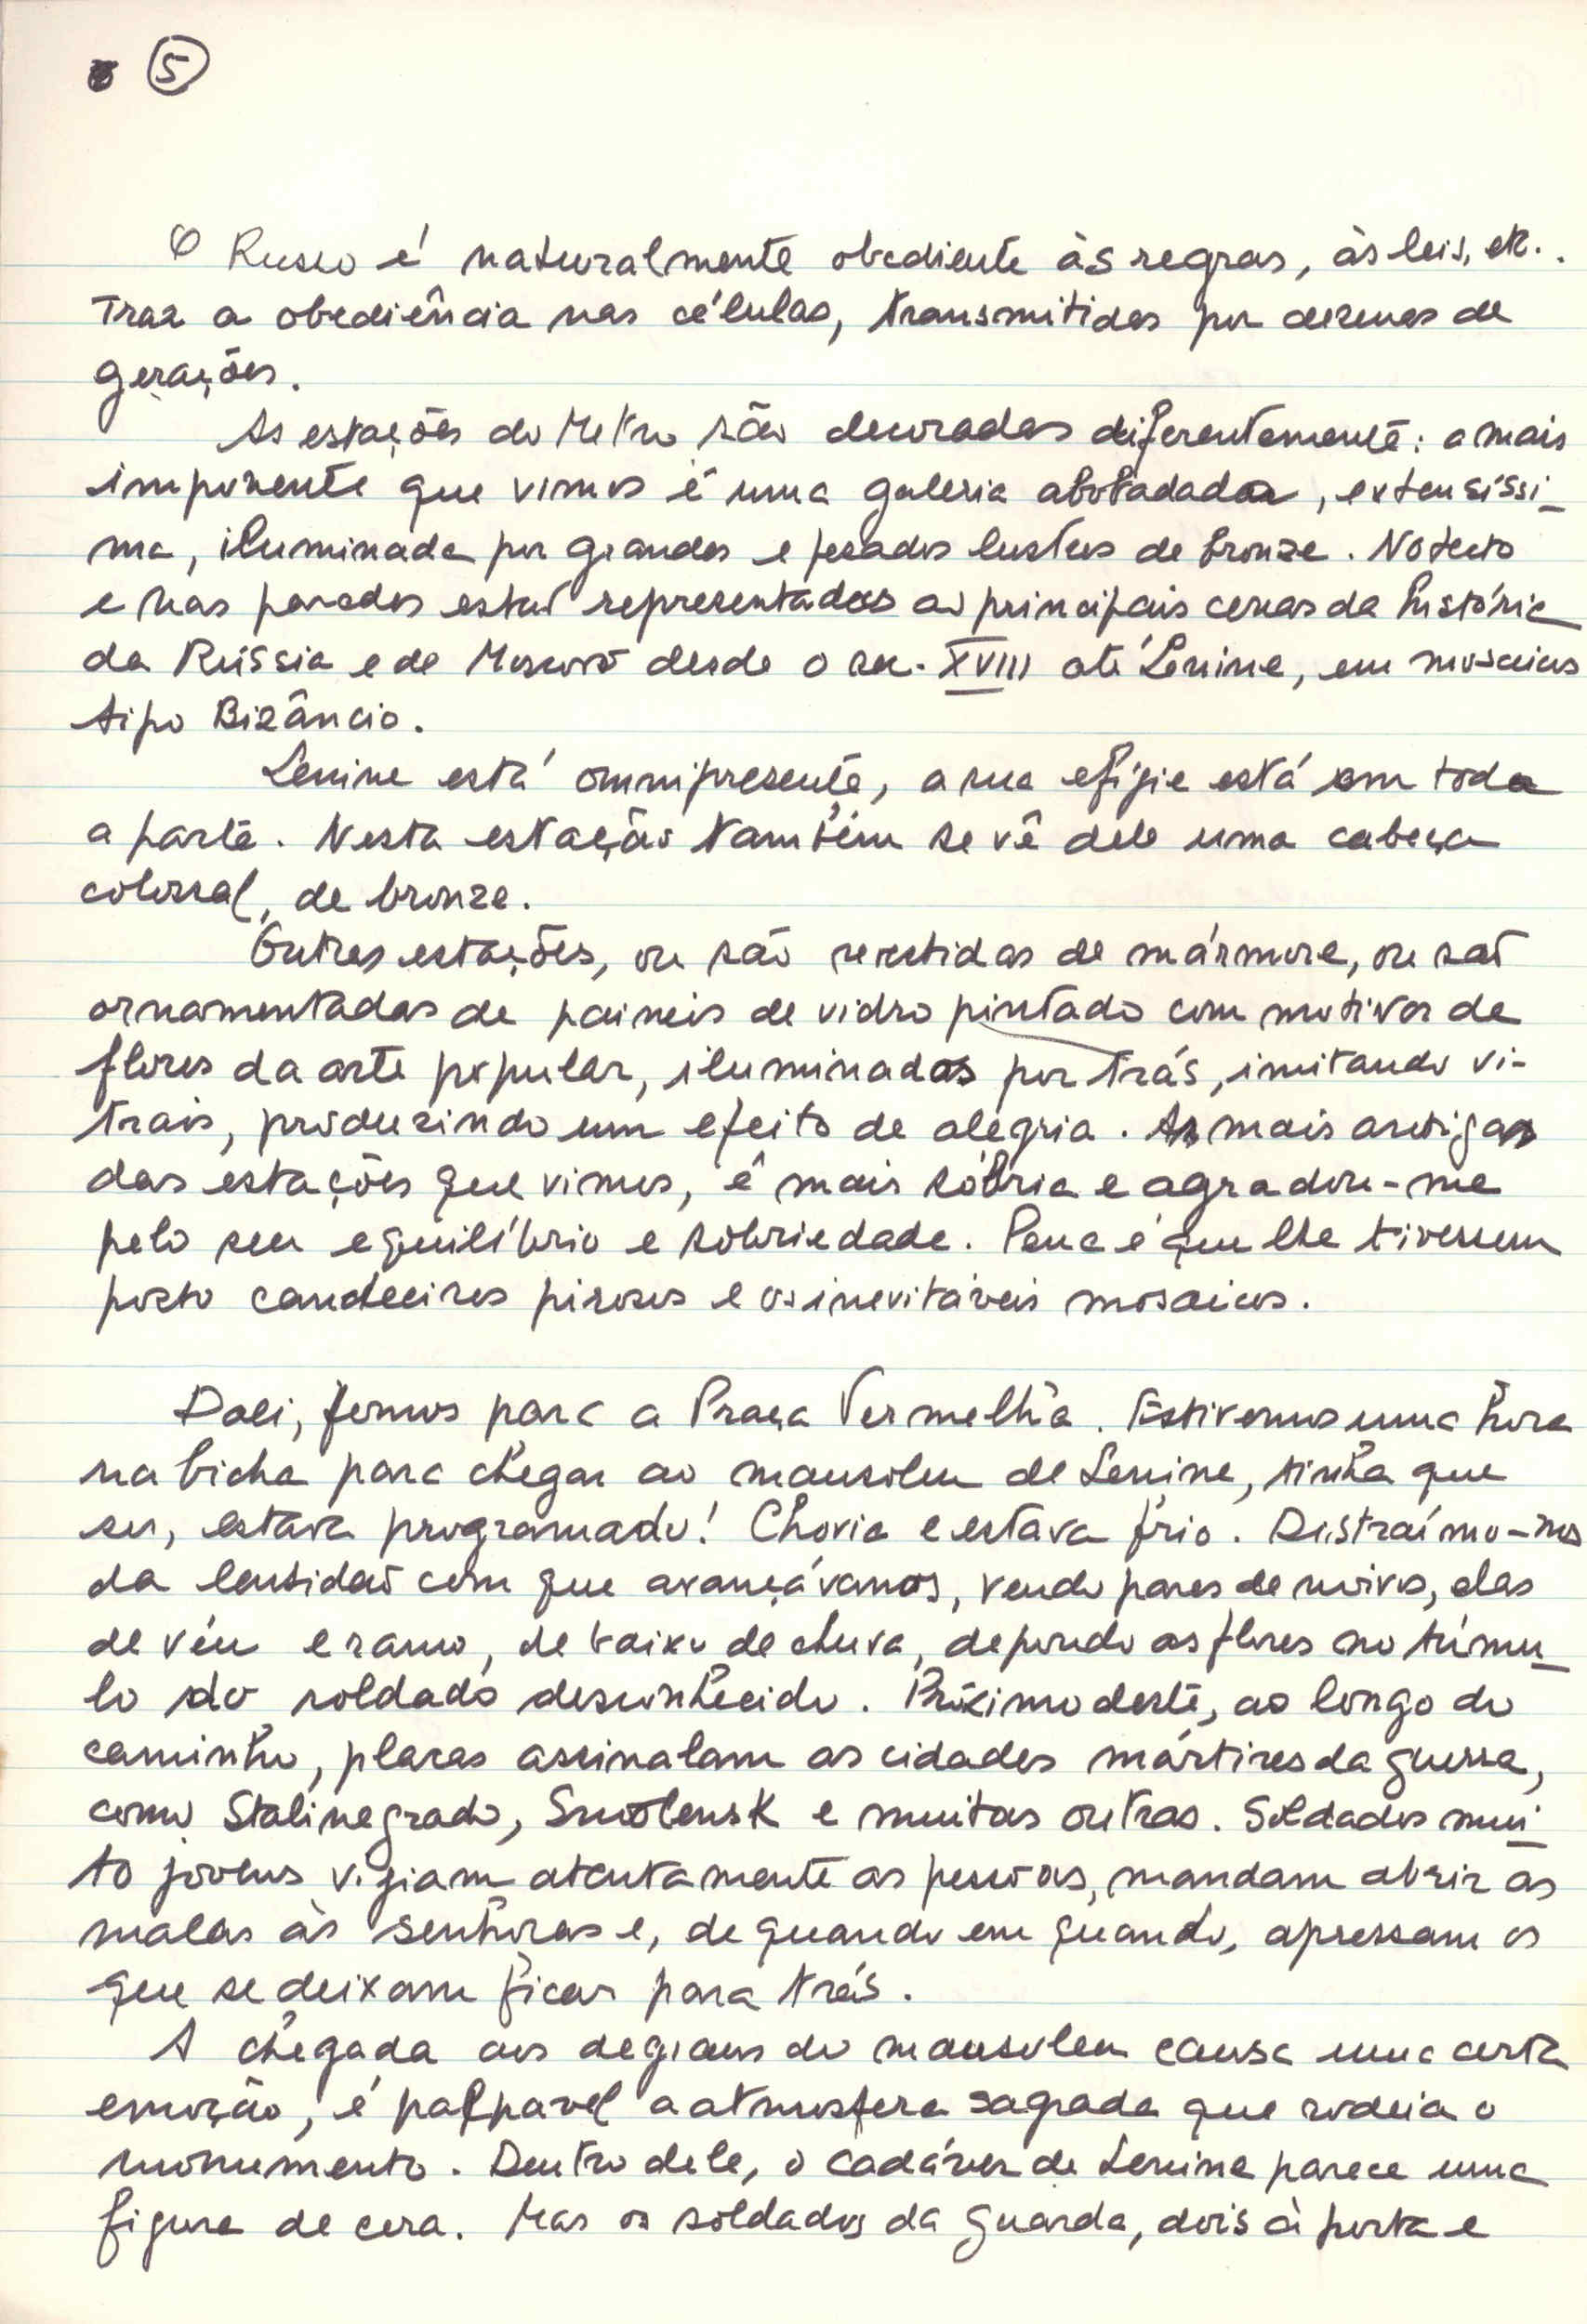 5
O Russo é naturalmente obediente às regras, às leis, etc..
Traz a obediência nas células, transmitidas por dezenas de
gerações.
As estações do Metro são decoradas diferentemente: a mais
imponente que vimos é uma galeria abobadada, extensíssi-
ma, iluminada por grandes e pesados lustres de bronze. No tecto
e nas paredes estão representadas as principais cenas da história
da Rússia e de Moscovo desde o séc. XVIII até Lenine, em mosaicos
tipo Bizâncio.
Lenine está omnipresente, a sua efígie está em toda
a parte. Nesta estação também se vê dele uma cabeça
colossal, de bronze.
Outras estações, ou são revestidas de mármore, ou são
ornamentadas de paineis de vidro pintado com motivos de
flores da arte popular, iluminados por trás, imitando vi-
trais, produzindo um efeito de alegria. A mais antiga
das estações que vimos, é mais sóbria e agradou-me
pelo seu equilíbrio e sobriedade. Pena é que lhe tivessem
posto candeeiros pirosos e os inevitáveis mosaicos.
Dali, fomos para a Praça Vermelha. Estivemos uma hora
na bicha para chegar ao mausoleu de Lenine, tinha que
ser, estava programado! Chovia e estava frio. Distraímo-nos
da lentidão com que avançávamos, vendo pares de noivos, elas
de véu e ramo, debaixo de chuva, depondo as flores no túmu-
lo do soldado desconhecido. Próximo deste, ao longo do
caminho, placas assinalam as cidades mártires da guerra,
como Stalinegrado, Smolensk e muitas outras. Soldados mui-
to jovens vigiam atentamente as pessoas, mandam abrir as
malas às senhoras e, de quando em quando, apressam os
que se deixam ficar para trás.
A chegada aos degraus do mausoleu causa uma certa
emoção, é palpavel a atmosfera sagrada que rodeia o
monumento. Dentro dele, o cadáver de Lenine parece uma
figura de cera. Mas os soldados da guarda, dois à porta e